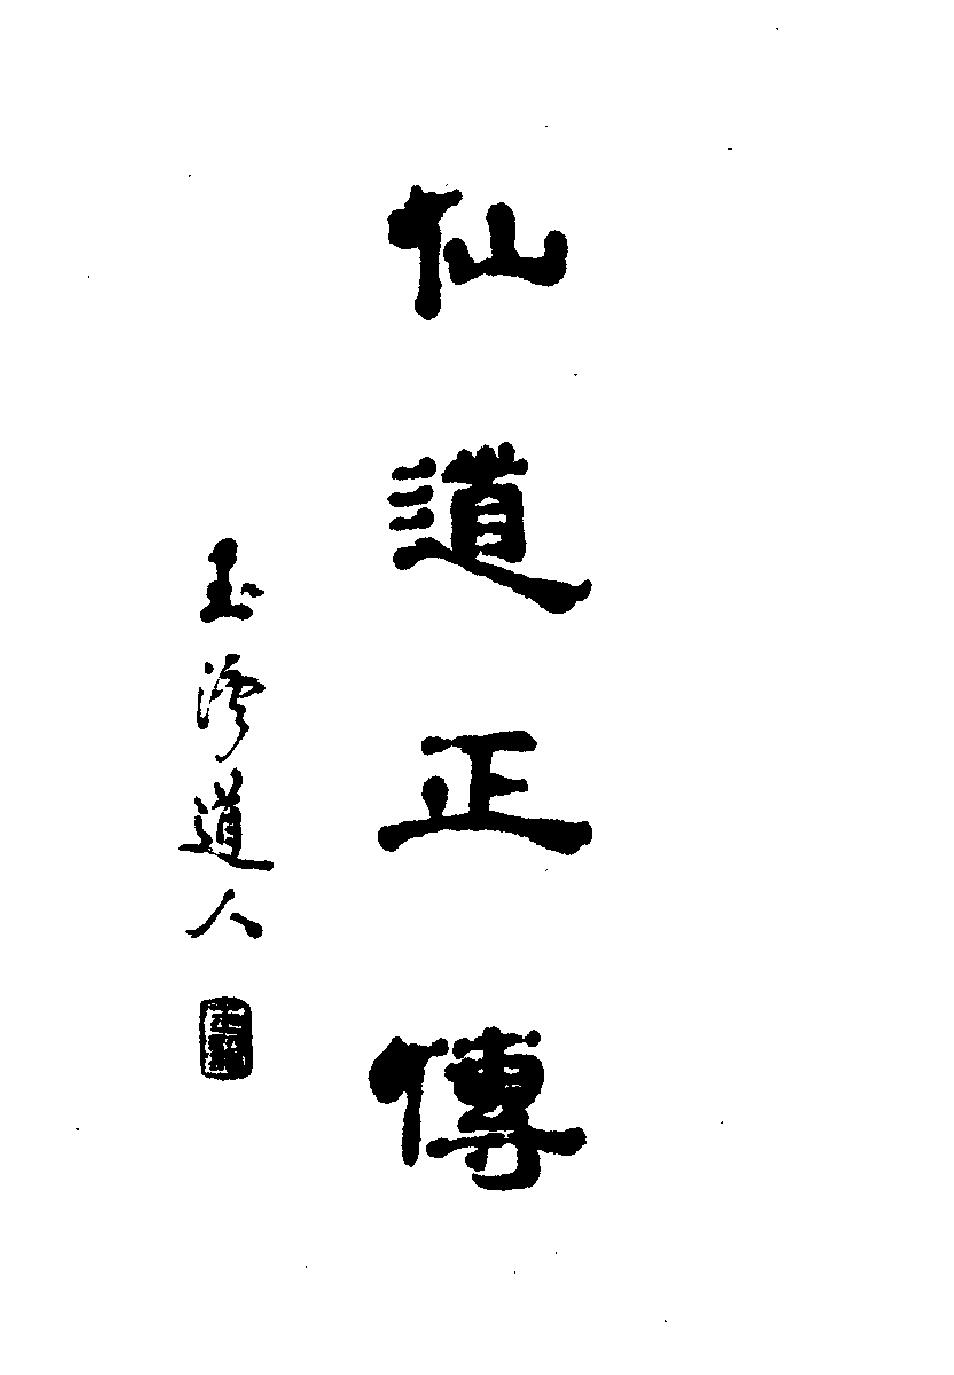 仙道正傳
玉溪道人